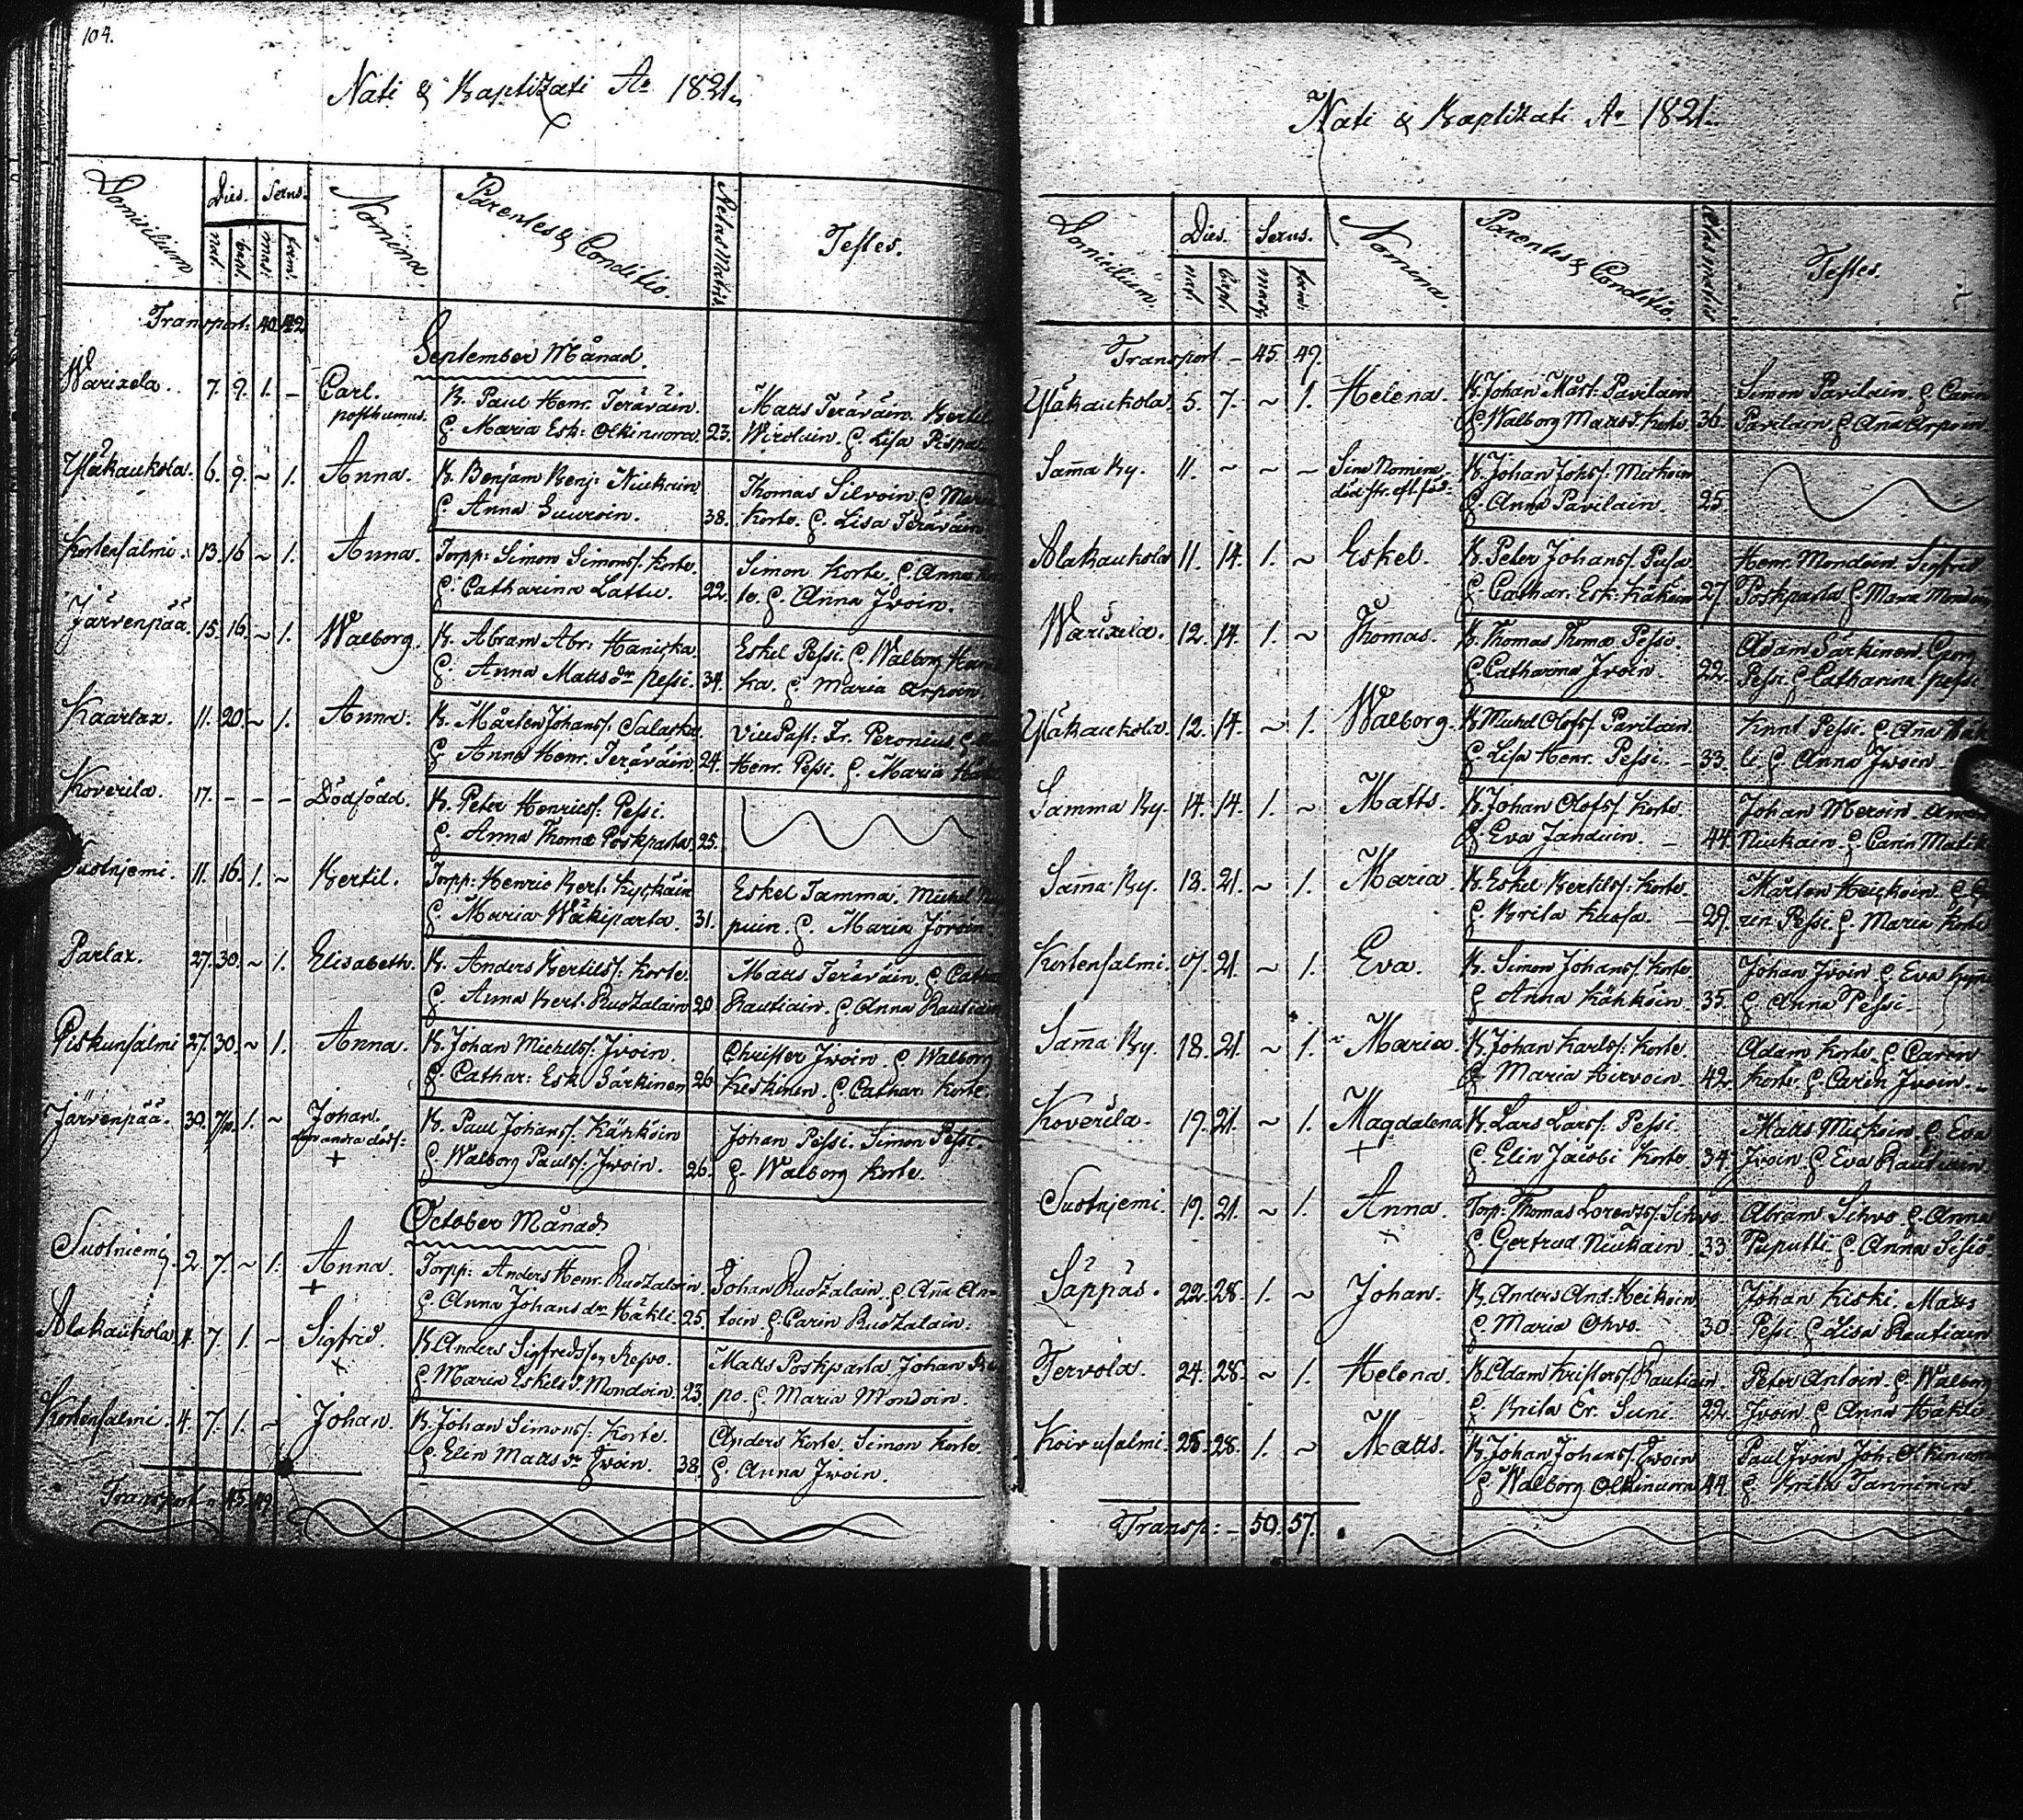 104.
Nati & Baptizati Ao 1821.
Domicilium
Dies. Sexus.
nat. bapt. masc. foem.
Nomina.
Parentes & Conditio.
Aetas Matris
Testes.
Transport: 40. 42
September Månad.
Warixela. 7. 9. 1. – Carl. B. Paul Henr. Teräväin. Matts Teräväin. Bertil
posthumus. H. Maria Esk: Olkinuora. 23. Wirolain. H. Lisa Pispa
Yläkaukola. 6. 9. ~ 1. Anna. B. Benjam Benj: Niukain Thomas Silvoin. H. Maria
H. Anna Suuroin. 38. Korte. H. Lisa Teräväin
Kortensalmi. 13. 16 ~ 1. Anna. Torpp: Simon Simonss. Korte. Simon Korte. H. Anna Kor
H. Catharina Lattu. 22. te. H. Anna Ivoin.
Järvenpää. 15. 16. ~ 1. Walborg. B. Abram Abr: Hanicka Eskel Pessi. H. Walborg Hanic
H. Anna Mattsdr Pessi. 34. ka. H. Maria Arpoin.
Kaarlax. 11. 20. ~ 1. Anna. B. Mårten Johanss. Salaska. VicePast: Fr. Peronius. H.
H. Anna Henr. Teräväin 24. Henr. Pessi. H. Maria
Koverila. 17. – – – Dödfödd. B. Peter Henricss: Pessi.
H. Anna Thomæ Poskparta. 25.
Suotnjemi. 11. 16. 1. ~ Bertil. Torpp: Henric Bert. Kyckäin Eskel Tamma. Michel
H. Maria Wäkiparta. 31. puin. H. Maria Jovoin
Parlax. 27. 30. ~ 1. Elisabeth. B. Anders Bertilss: Korte. Matts Teräväin. H. Catha
H. Anna Bert. Ruotzalain 20 Rautiain. H. Anna Rautiain
Piskunsalmi 27. 30. ~ 1. Anna. B. Johan Michelss: Ivoin. Christer Ivoin H. Walborg
H. Cathar: Esk Särkinen 26 Keskinen. H. Cathar. Korte.
Järvenpää. 30. 7/10. 1. ~ Johan. B. Paul Johanss. Kähköin Johan Pessi. Simon Pessi.
+ H. Walborg Paulss: Ivoin. 26. H. Walborg Korte.
October Månad.
Suotniemj. 2. 7. ~ 1. Anna. Torpp: Anders Henr. Ruotzalain Johan Ruotzalain. H. Anna An-
+ H. Anna Johansdr Häkli. 25. toin. H. Carin Ruotzalain.
Alakaukola 4. 7. 1. ~ Sigfrid. B. Anders Sigfredsson Repo. Matts Poskparta. Johan Re
x H. Maria Eskelsd. Mondoin. 23 po. H. Maria Mondoin.
Kortensalmi. 4. 7. 1. ~ Johan. B. Johan Simonss: Korte. Anders Korte. Simon Korte.
H. Elin Mattsdr Ivoin. 38. H. Anna Ivoin.
Transport – 45. 49.
Nati & Baptizati Ao 1821.
Domicilium.
Dies. Sexus.
nat. bapt. masc. foem.
Nomina.
Parentes & Conditio.
Ætas matris
Testes.
Transport – 45. 49.
Yläkaukola. 5. 7. ~ 1. Helena. B. Johan Mårt. Pavilain Simon Pavilain. H. Carin
H. Walborg Mattsd. Korte 36. Pavilain H. Anna Arpoin
Sama By. 11. ~ ~ ~ Sine Nomine. B. Johan Johss: Mäkein
död str. eft. föd: H. Anna Pavilain. 25.
Alakaukola 11. 14. 1. ~ Eskel. B. Peter Johanss. Pusa Henr. Mondoin. Sigfrid
H. Cathar. Esk: Käkein 27 Poskparta H. Maria Mondoin
Warixela. 12. 14. 1. ~ Thomas. B. Thomas Thomæ Pessi. Adam Särkinen. Georg
H. Catharina Ivoin. 22. Pessi. H. Catharina Pessi
Yläkaukola. 12. 14. ~ 1. Walborg. B. Michel Olofss. Pavilain. Knut Pessi. H. Anna Häk
H. Lisa Henr. Pessi. – 33. li. H. Anna Ivoin.
Samma By. 14. 14. 1. ~ Matts. B. Johan Olofss. Korte. Johan Meroin.
H. Eva Janduin. – 44. Niukain. H. Carin
Sama By. 18. 21. ~ 1. Maria. B. Eskel Bertilss: Korte. Mårten Heickoin. H. Ca
H. Brita Kuosa. – 29. rin Pessi. H. Maria Korte
Kortensalmi. 17. 21. ~ 1. Eva. B. Simon Johanss. Korte Johan Ivoin H. Eva
H. Anna Kähköin. 35. H. Anna Pessi.
Sama By. 18. 21. ~ 1. Maria. B. Johan Karlss: Korte. Adam Korte. H. Caren
H. Maria Hirvoin. 42. Korte. H. Carin Ivoin.
Koverila. 19. 21. ~ 1. Magdalena B. Lars Larss: Pessi Matts Mickoin. H. Eva
+ H. Elin Jacobi Korte. 34. Ivoin. H. Eva Rautiain
Suotnjemi. 19. 21. ~ 1. Anna. Torp: Thomas Lorentzss: Sihvo Abram Sihvo. H. Anna
x H. Gertrud Niukain 33. Puputti. H. Anna
Säppäs. 22. 28. 1. ~ Johan. B. Anders And: Heikoin Johan Kiski. Matts
H. Maria Ohvo. 30. Pessi. H. Lisa Rautiain
Tervola. 24. 28. ~ 1. Helena. B. Adam Kristerss: Rautiain. Peter Antoin. H. Walborg
H. Brita Er. Suni. 22. Ivoin. H. Anna Häkli.
Koivusalmi. 28. 28. 1. ~ Matts. B. Johan Johanss: Ivoin Paul Ivoin Joh: Olkinuora
H. Walborg Olkinuora 44. H. Brita Tanninen
Transp: – 50. 57.